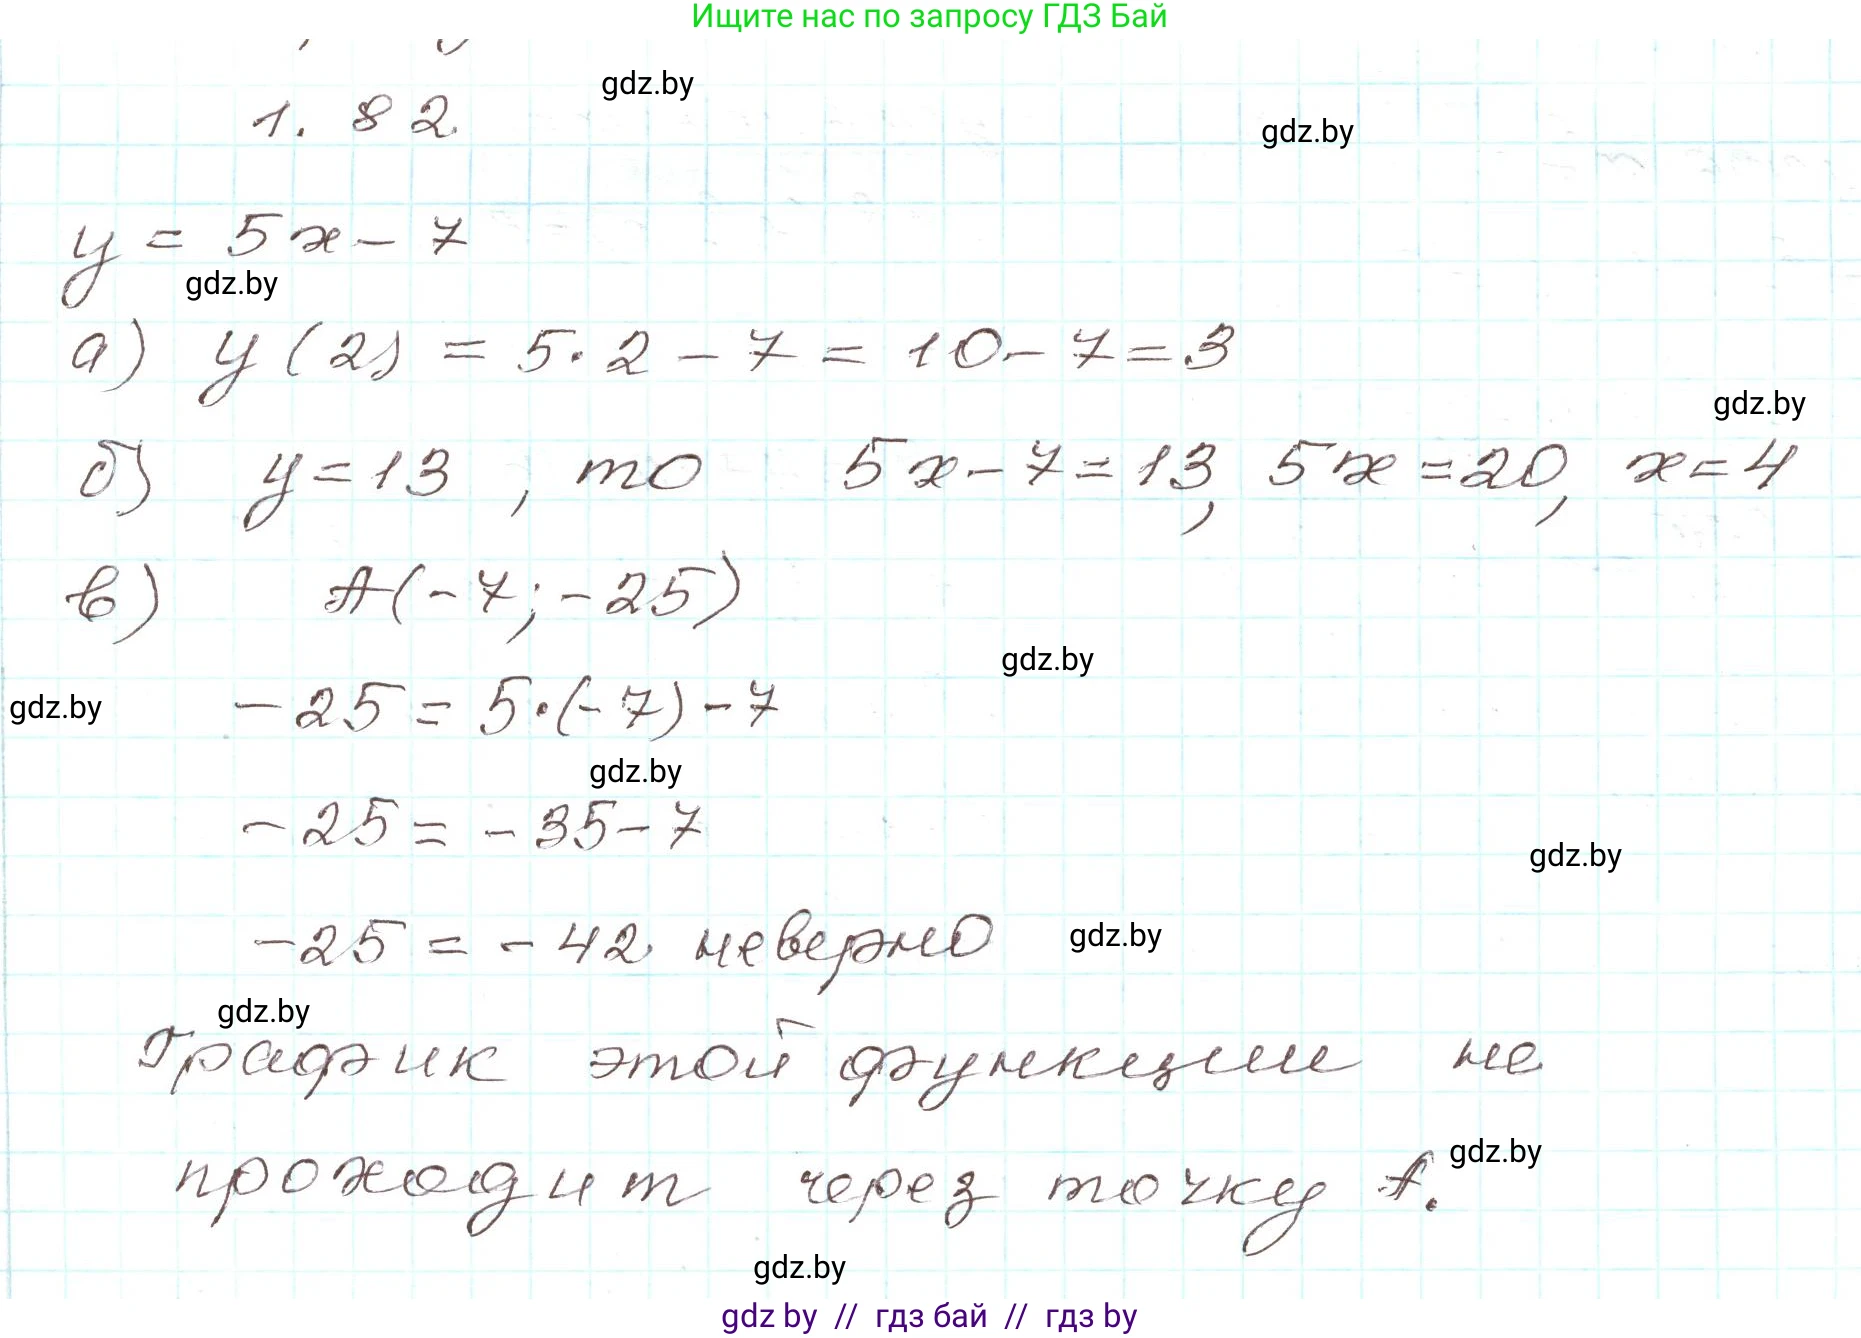 Ищите нас по запросу ГДЗ Бай
gdz.by
1. 82
gdz.by
y = 5x - 7
gdz.by
а) y(2) = 5·2 - 7 = 10 - 7 = 3
gdz.by
б) y = 13, то 5x - 7 = 13, 5x = 20, x = 4
в) A(-7; -25)
gdz.by
gdz.by
-25 = 5·(-7) - 7
gdz.by
-25 = -35 - 7
gdz.by
-25 = -42 неверно
gdz.by
gdz.by
График этой функции не
gdz.by
проходит через точку A.
gdz.by
gdz by // гдз бай // гдз by